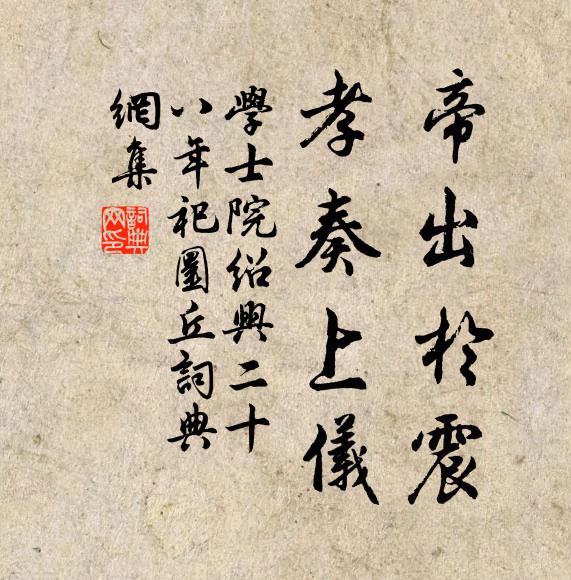 帝出於震
孝奏上儀
學士院紹興二十
八年祀圜丘詞典
網集
詞典
网印